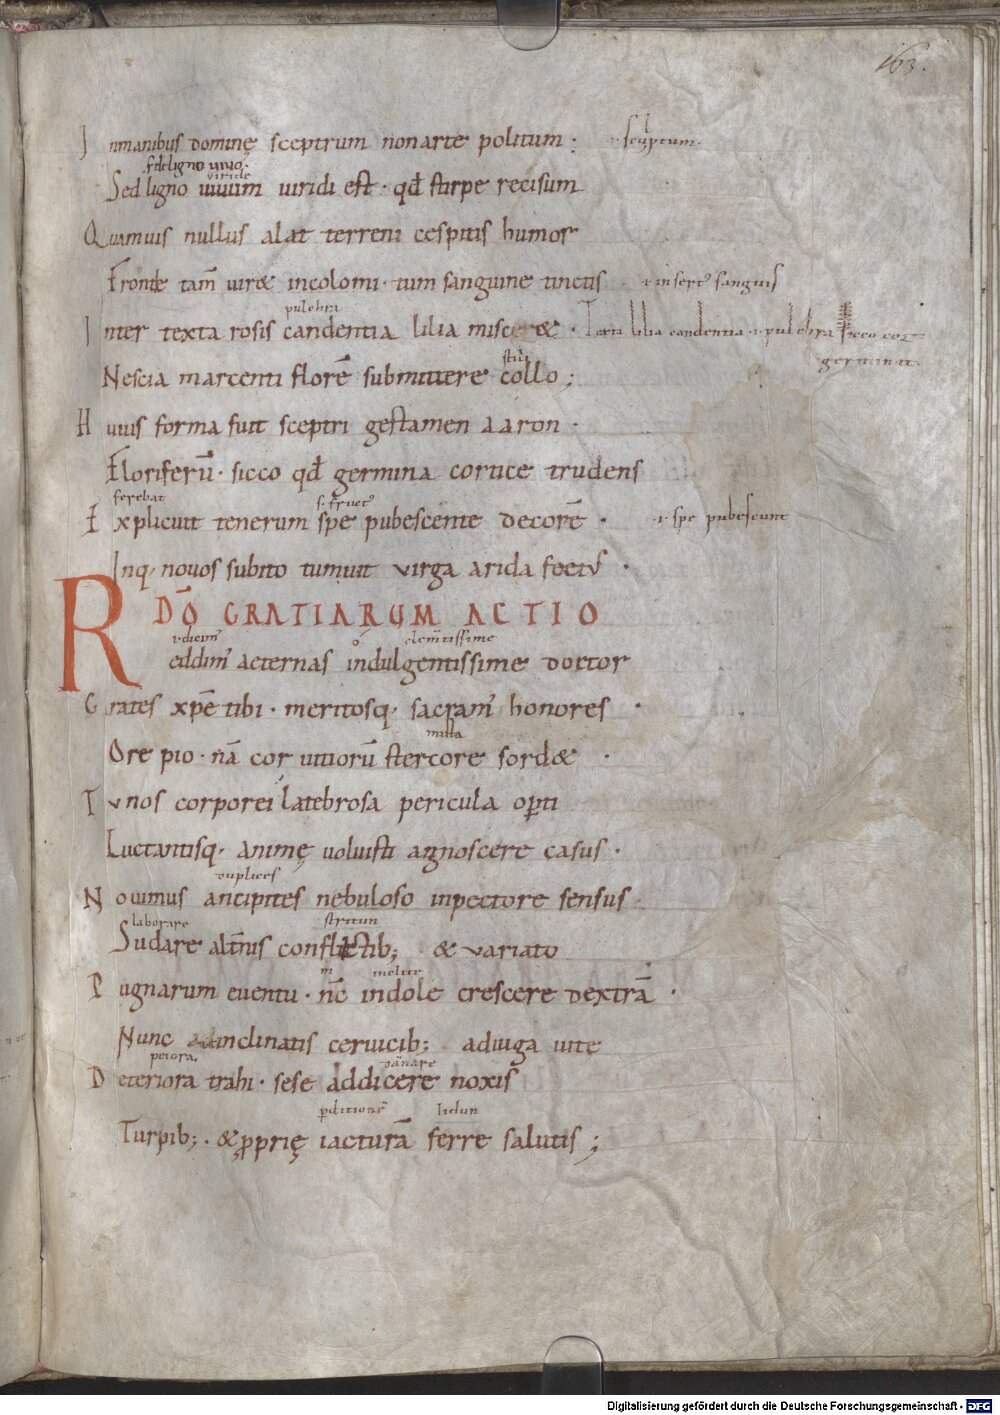 163.
In manibus dominę sceptrum non arte politum · scłptum.
s. de ligno uiuo. uiride
Sed ligno uiuum uiridi est · qđ stirpe recisum
Quamuis nullus alat terreni cespitis humor
Fronde tam̄ uiret incolomi · tum sanguine tinctis
pulchra
Inter texta rosis candentia lilia miscet · Texti lilia candentia ·i· pulchra sicco cort
germinat.
Nescia marcenti florē submittere collo ;
Huius forma fuit sceptri gestamen aaron ·
Floriferū · sicco qđ germina cortice trudens
ferebat
Explicuit tenerum spe pubescente decorē · ·i· spe pubescunt
Inq· nouos subito tumuit virga arida foetus ·
DŌ GRATIARUM ACTIO
Reddim' aeternas indulgentissime doctor
Grates xp̄e tibi · meritosq· sacram' honores ·
Ore pio · nā cor uitiorū stercore sordet ·
Tu nos corporei latebrosa pericula operti
Luctantisq· animę uoluisti agnoscere casus ·
duplices
Nouimus ancipites nebuloso in pectore sensus
laborare
Sudare alt̄nis conflictib; & variato
Pugnarum euentu · nc̄ indole crescere dextrā ·
Nunc inclinatis ceruicib; ad iuga uite
peiora dānare
Deteriora trahi · sese addicere noxis
pditionē
Turpib; · & pprię iacturā ferre salutis ;
Digitalisierung gefördert durch die Deutsche Forschungsgemeinschaft - DFG